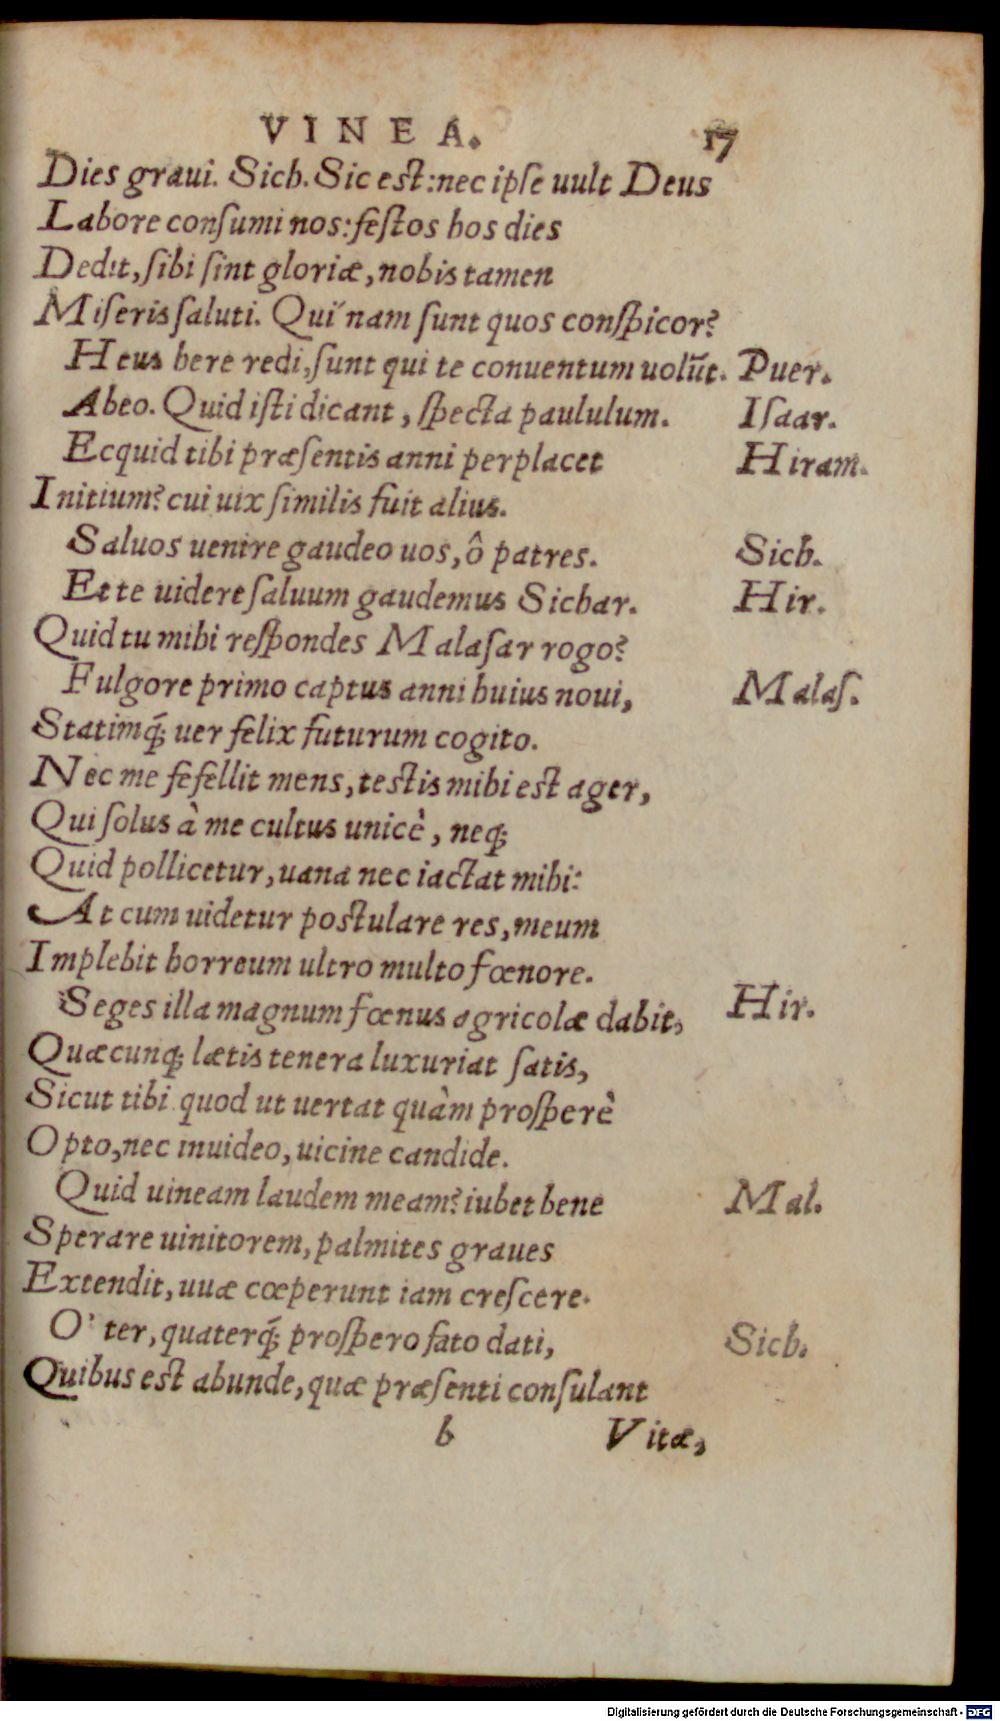 VINEA. 17
Dies graui. Sich. Sic est: nec ipse uult Deus
Labore consumi nos: festos hos dies
Dedit, sibi sint gloriæ, nobis tamen
Miseris saluti. Quinam sunt quos conspicor?
Heus here redi, sunt qui te conuentum uolūt. Puer.
Abeo. Quid isti dicant, specta paululum. Isaar.
Ecquid tibi præsentis anni perplacet Hiram.
Initium? cui uix similis fuit alius.
Saluos uenire gaudeo uos, ô patres. Sich.
Et te uidere saluum gaudemus Sichar. Hir.
Quid tu mihi respondes Malasar rogo?
Fulgore primo captus anni huius noui, Malas.
Statimq́; uer felix futurum cogito.
Nec me fefellit mens, testis mihi est ager,
Qui solus à me cultus unicè, neq;
Quid pollicetur, uana nec iactat mihi:
At cum uidetur postulare res, meum
Implebit horreum ultro multo fœnore.
Seges illa magnum fœnus agricolæ dabit, Hir.
Quæcunq; lætis tenera luxuriat satis,
Sicut tibi quod ut uertat quàm prosperè
Opto, nec inuideo, uicine candide.
Quid uineam laudem meam? iubet bene Mal.
Sperare uinitorem, palmites graues
Extendit, uuæ cœperunt iam crescere.
O' ter, quaterq́; prospero fato dati, Sich.
Quibus est abunde, quæ præsenti consulant
b Vitæ,
Digitalisierung gefördert durch die Deutsche Forschungsgemeinschaft - DFG